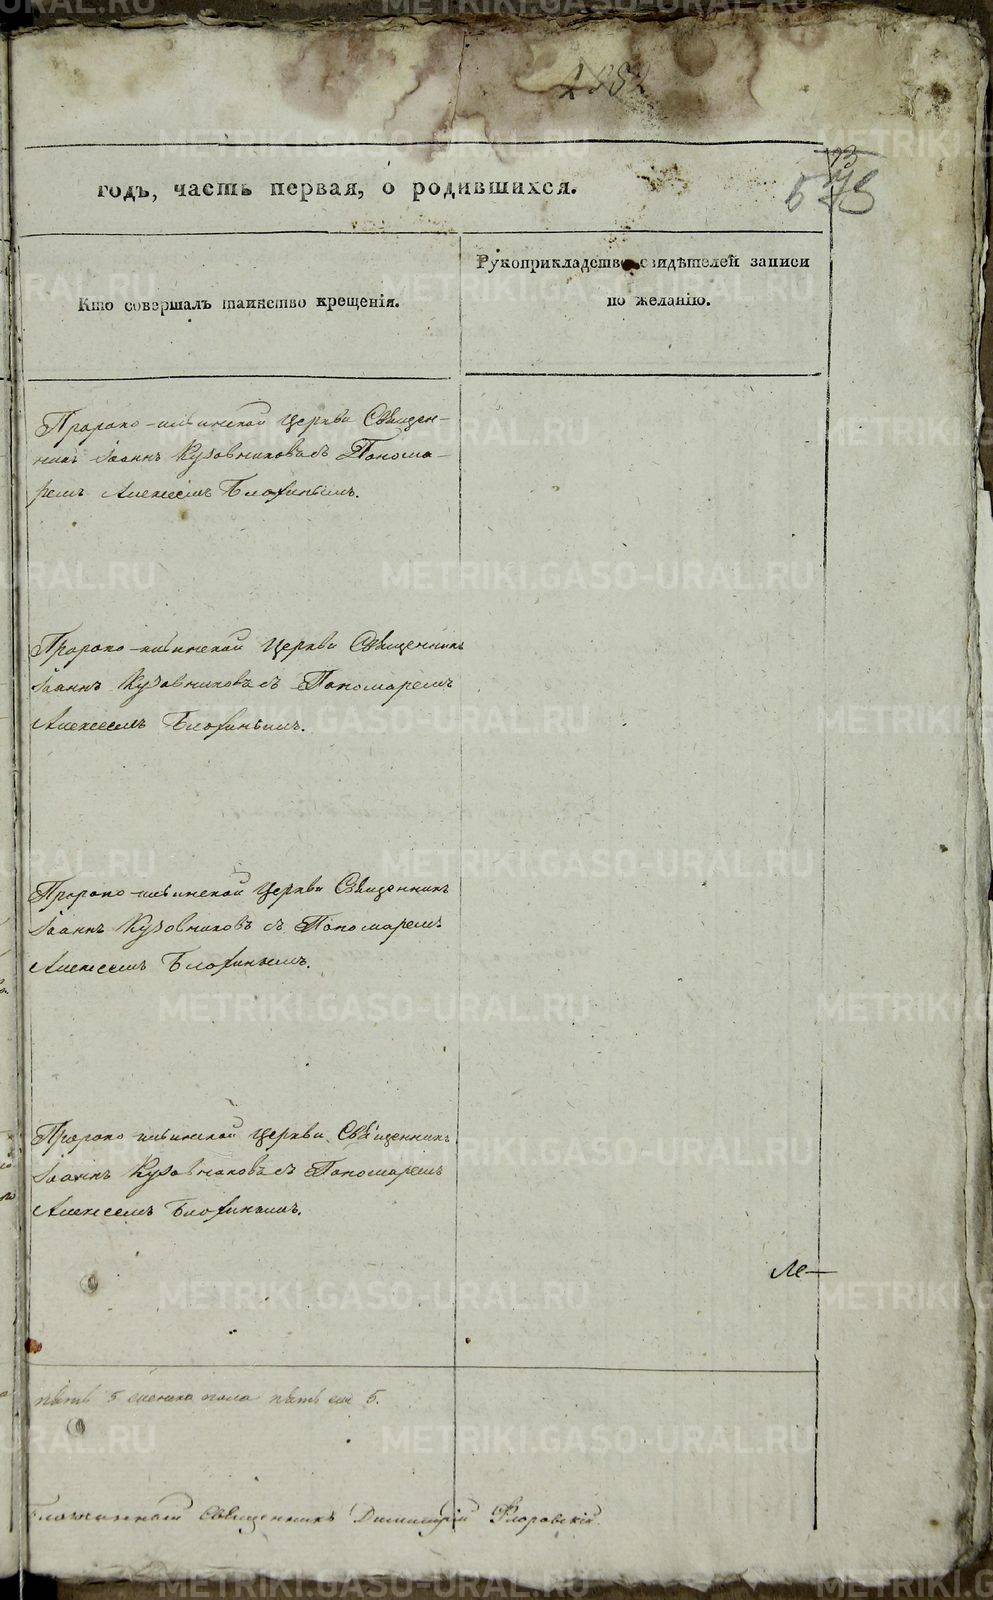 годъ, часть первая, о родившихся.
Кто совершалъ таинство крещенія.
Рукоприкладство свидѣтелей записи
по желанію.
Пророко-ильинской Церкви Священ-
никъ Іоаннъ Кузовниковъ съ Понома-
ремъ Алексеемъ Блофинымъ.
Пророко-ильинской Церкви Священникъ
Іоаннъ Кузовниковъ съ Пономаремъ
Алексеемъ Блофинымъ.
Пророко-ильинской Церкви Священникъ
Іоаннъ Кузовниковъ съ Пономаремъ
Алексеемъ Блофинымъ.
Пророко-ильинской Церкви Священникъ
Іоаннъ Кузовниковъ съ Пономаремъ
Алексеемъ Блофинымъ.
Ле-
пять 5 женска пола пять 5.
Священникъ Димитрій Флоровскій
METRIKI.GASO-URAL.RU